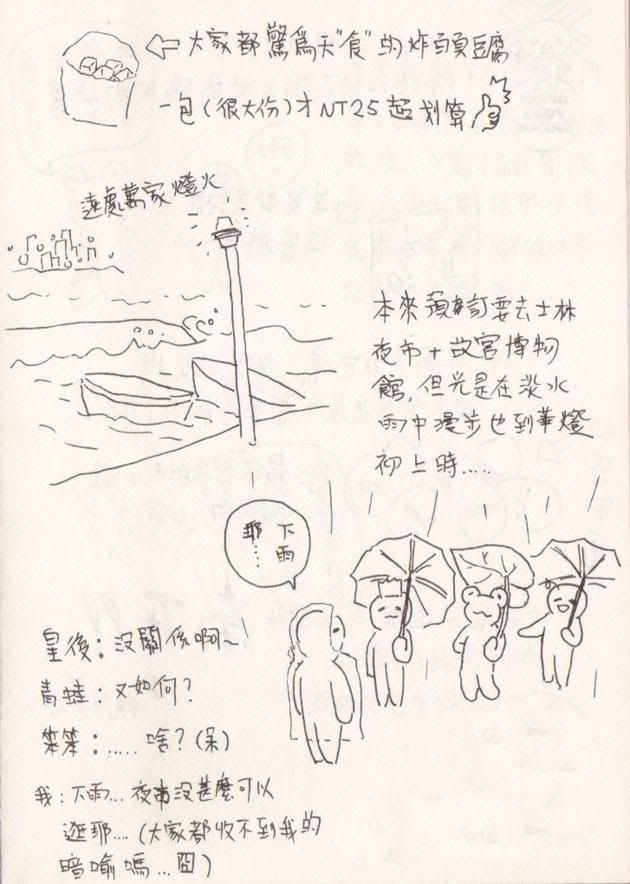 大家都驚爲天"食"的炸百頁豆腐
一包(很大份)才NT25超划算
遠處萬家燈火
本來預訂要去士林
夜市+故宮博物
館,但光是在淡水
雨中漫步也到華燈
初上時.....
下雨
耶...
皇後:沒關係啊
青蛙:又如何?
笨笨:.....啥?(呆)
我:下雨...夜市沒甚麼可以
逛耶....(大家都收不到我的
暗喻嗎...囧)